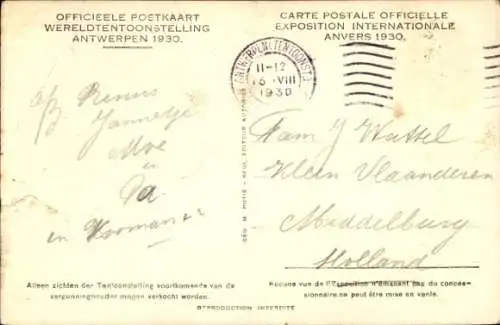 OFFICIEELE POSTKAART
WERELDTENTOONSTELLING
ANTWERPEN 1930.
CARTE POSTALE OFFICIELLE
EXPOSITION INTERNATIONALE
ANVERS 1930.
ANTWERPEN (TENTOONST.)
11-12
VIII
1930
afz Rinus
Jannetje
Moe
en
Pa
en
Fam J Wattel
Klein Vlaanderen
Middelburg
Holland
GÉO. M. POTIÉ - SEUL EDITEUR AUTORISÉ
Alleen zichten der Tentoonstelling voortkomende van de
vergunninghouder mogen verkocht worden.
Aucune vue de l'Exposition n'émanant pas du conces-
sionnaire ne peut être mise en vente.
REPRODUCTION INTERDITE